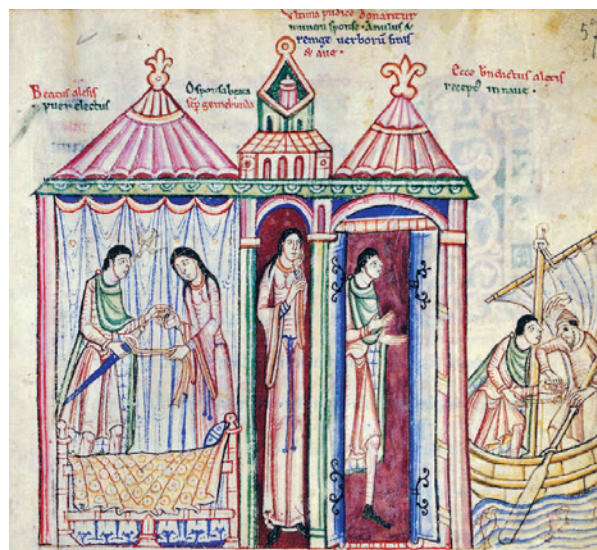 Beatus alexis
puer electus
O sponsa beata
semp gemebunda
Ultima pudice donantur
munera sponse · Anulus &
remge verborum finis
& aue ·
Ecce bndictus alexis
recept in naue ·